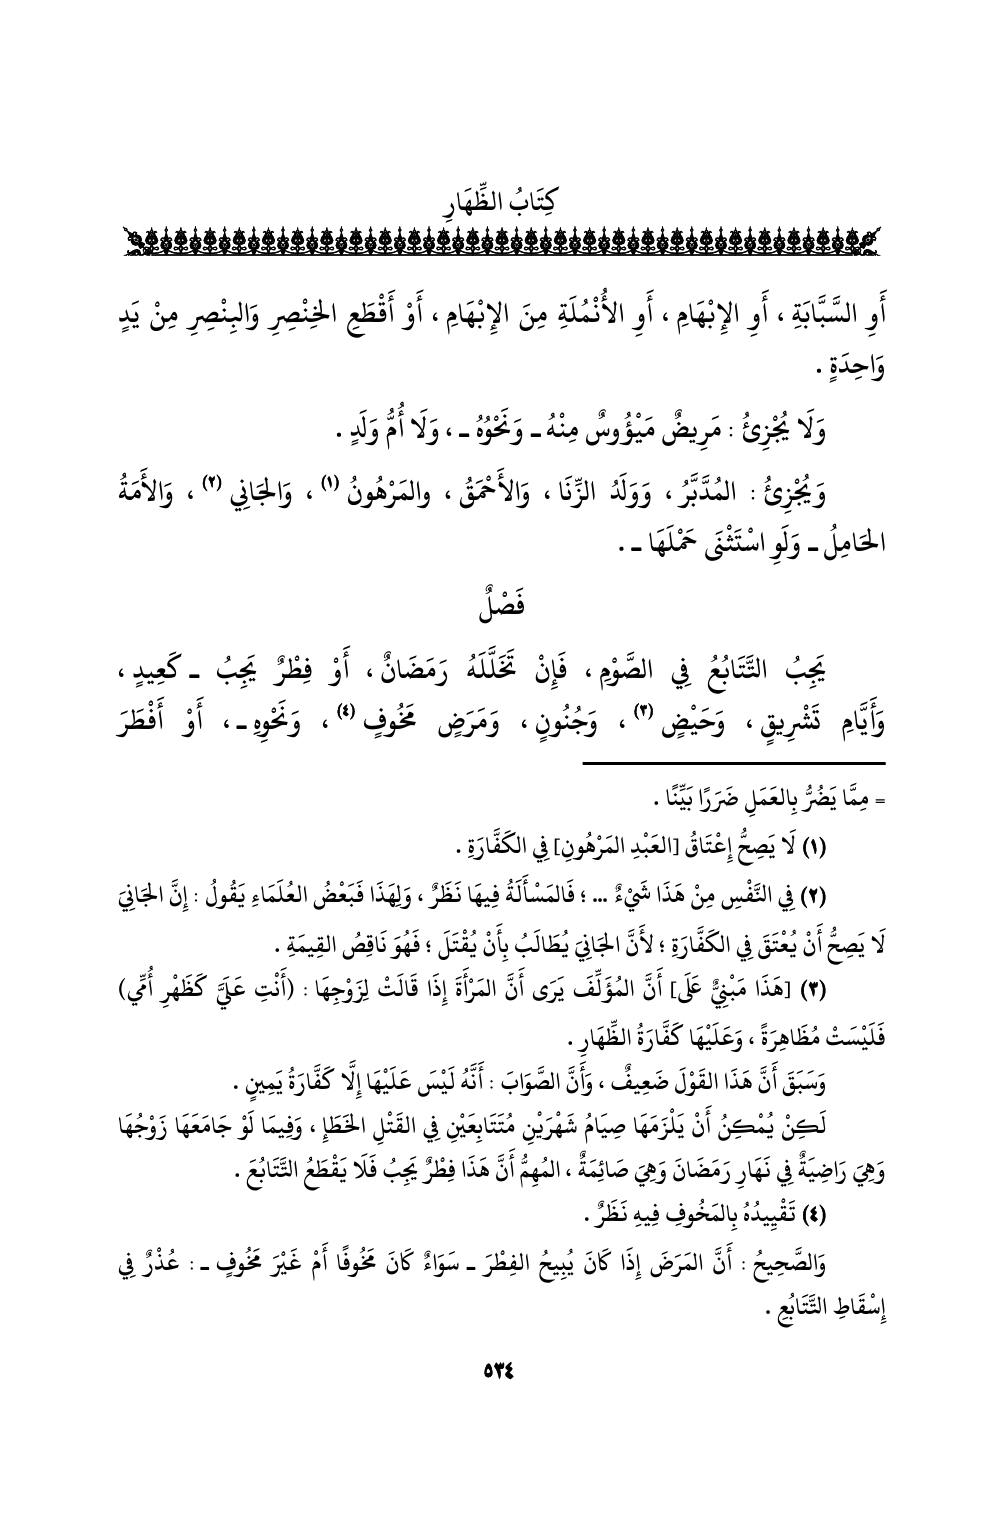 كِتَابُ الظِّهَارِ
أَوِ السَّبَّابَةِ ، أَوِ الإِبْهَامِ ، أَوِ الأُنْمُلَةِ مِنَ الإِبْهَامِ ، أَوْ أَقْطَعِ الخِنْصِرِ وَالبِنْصِرِ مِنْ يَدٍ
وَاحِدَةٍ .
وَلَا يُجْزِئُ : مَرِيضٌ مَيْؤُوسٌ مِنْهُ ـ وَنَحْوُهُ ـ ، وَلَا أُمُّ وَلَدٍ .
وَيُجْزِئُ : المُدَّبَّرُ ، وَوَلَدُ الزِّنَا ، وَالأَحْمَقُ ، والمَرْهُونُ (١) ، وَالجَانِي (٢) ، وَالأَمَةُ
الحَامِلُ ـ وَلَوِ اسْتَثْنَى حَمْلَهَا ـ .
فَصْلٌ
يَجِبُ التَّتَابُعُ فِي الصَّوْمِ ، فَإِنْ تَخَلَّلَهُ رَمَضَانٌ ، أَوْ فِطْرٌ يَجِبُ ـ كَعِيدٍ ،
وَأَيَّامِ تَشْرِيقٍ ، وَحَيْضٍ (٣) ، وَجُنُونٍ ، وَمَرَضٍ مَخُوفٍ (٤) ، وَنَحْوِهِ ـ ، أَوْ أَفْطَرَ
= مِمَّا يَضُرُّ بِالعَمَلِ ضَرَرًا بَيِّنًا .
(١) لَا يَصِحُّ إِعْتَاقُ [العَبْدِ المَرْهُونِ] فِي الكَفَّارَةِ .
(٢) فِي النَّفْسِ مِنْ هَذَا شَيْءٌ ... ؛ فَالمَسْأَلَةُ فِيهَا نَظَرٌ ، وَلِهَذَا فَبَعْضُ العُلَمَاءِ يَقُولُ : إِنَّ الجَانِيَ
لَا يَصِحُّ أَنْ يُعْتَقَ فِي الكَفَّارَةِ ؛ لأَنَّ الجَانِيَ يُطَالَبُ بِأَنْ يُقْتَلَ ؛ فَهُوَ نَاقِصُ القِيمَةِ .
(٣) [هَذَا مَبْنِيٌّ عَلَى] أَنَّ المُؤَلِّفَ يَرَى أَنَّ المَرْأَةَ إِذَا قَالَتْ لِزَوْجِهَا : (أَنْتِ عَلَيَّ كَظَهْرِ أُمِّي)
فَلَيْسَتْ مُظَاهِرَةً ، وَعَلَيْهَا كَفَّارَةُ الظِّهَارِ .
وَسَبَقَ أَنَّ هَذَا القَوْلَ ضَعِيفٌ ، وَأَنَّ الصَّوَابَ : أَنَّهُ لَيْسَ عَلَيْهَا إِلَّا كَفَّارَةُ يَمِينٍ .
لَكِنْ يُمْكِنُ أَنْ يَلْزَمَهَا صِيَامُ شَهْرَيْنِ مُتَتَابِعَيْنِ فِي القَتْلِ الخَطَإِ ، وَفِيمَا لَوْ جَامَعَهَا زَوْجُهَا
وَهِيَ رَاضِيَةٌ فِي نَهَارِ رَمَضَانَ وَهِيَ صَائِمَةٌ ، المُهِمُّ أَنَّ هَذَا فِطْرٌ يَجِبُ فَلَا يَقْطَعُ التَّتَابُعَ .
(٤) تَقْيِيدُهُ بِالمَخُوفِ فِيهِ نَظَرٌ .
وَالصَّحِيحُ : أَنَّ المَرَضَ إِذَا كَانَ يُبِيحُ الفِطْرَ ـ سَوَاءٌ كَانَ مَخُوفًا أَمْ غَيْرَ مَخُوفٍ ـ : عُذْرٌ فِي
إِسْقَاطِ التَّتَابُعِ .
٥٣٤